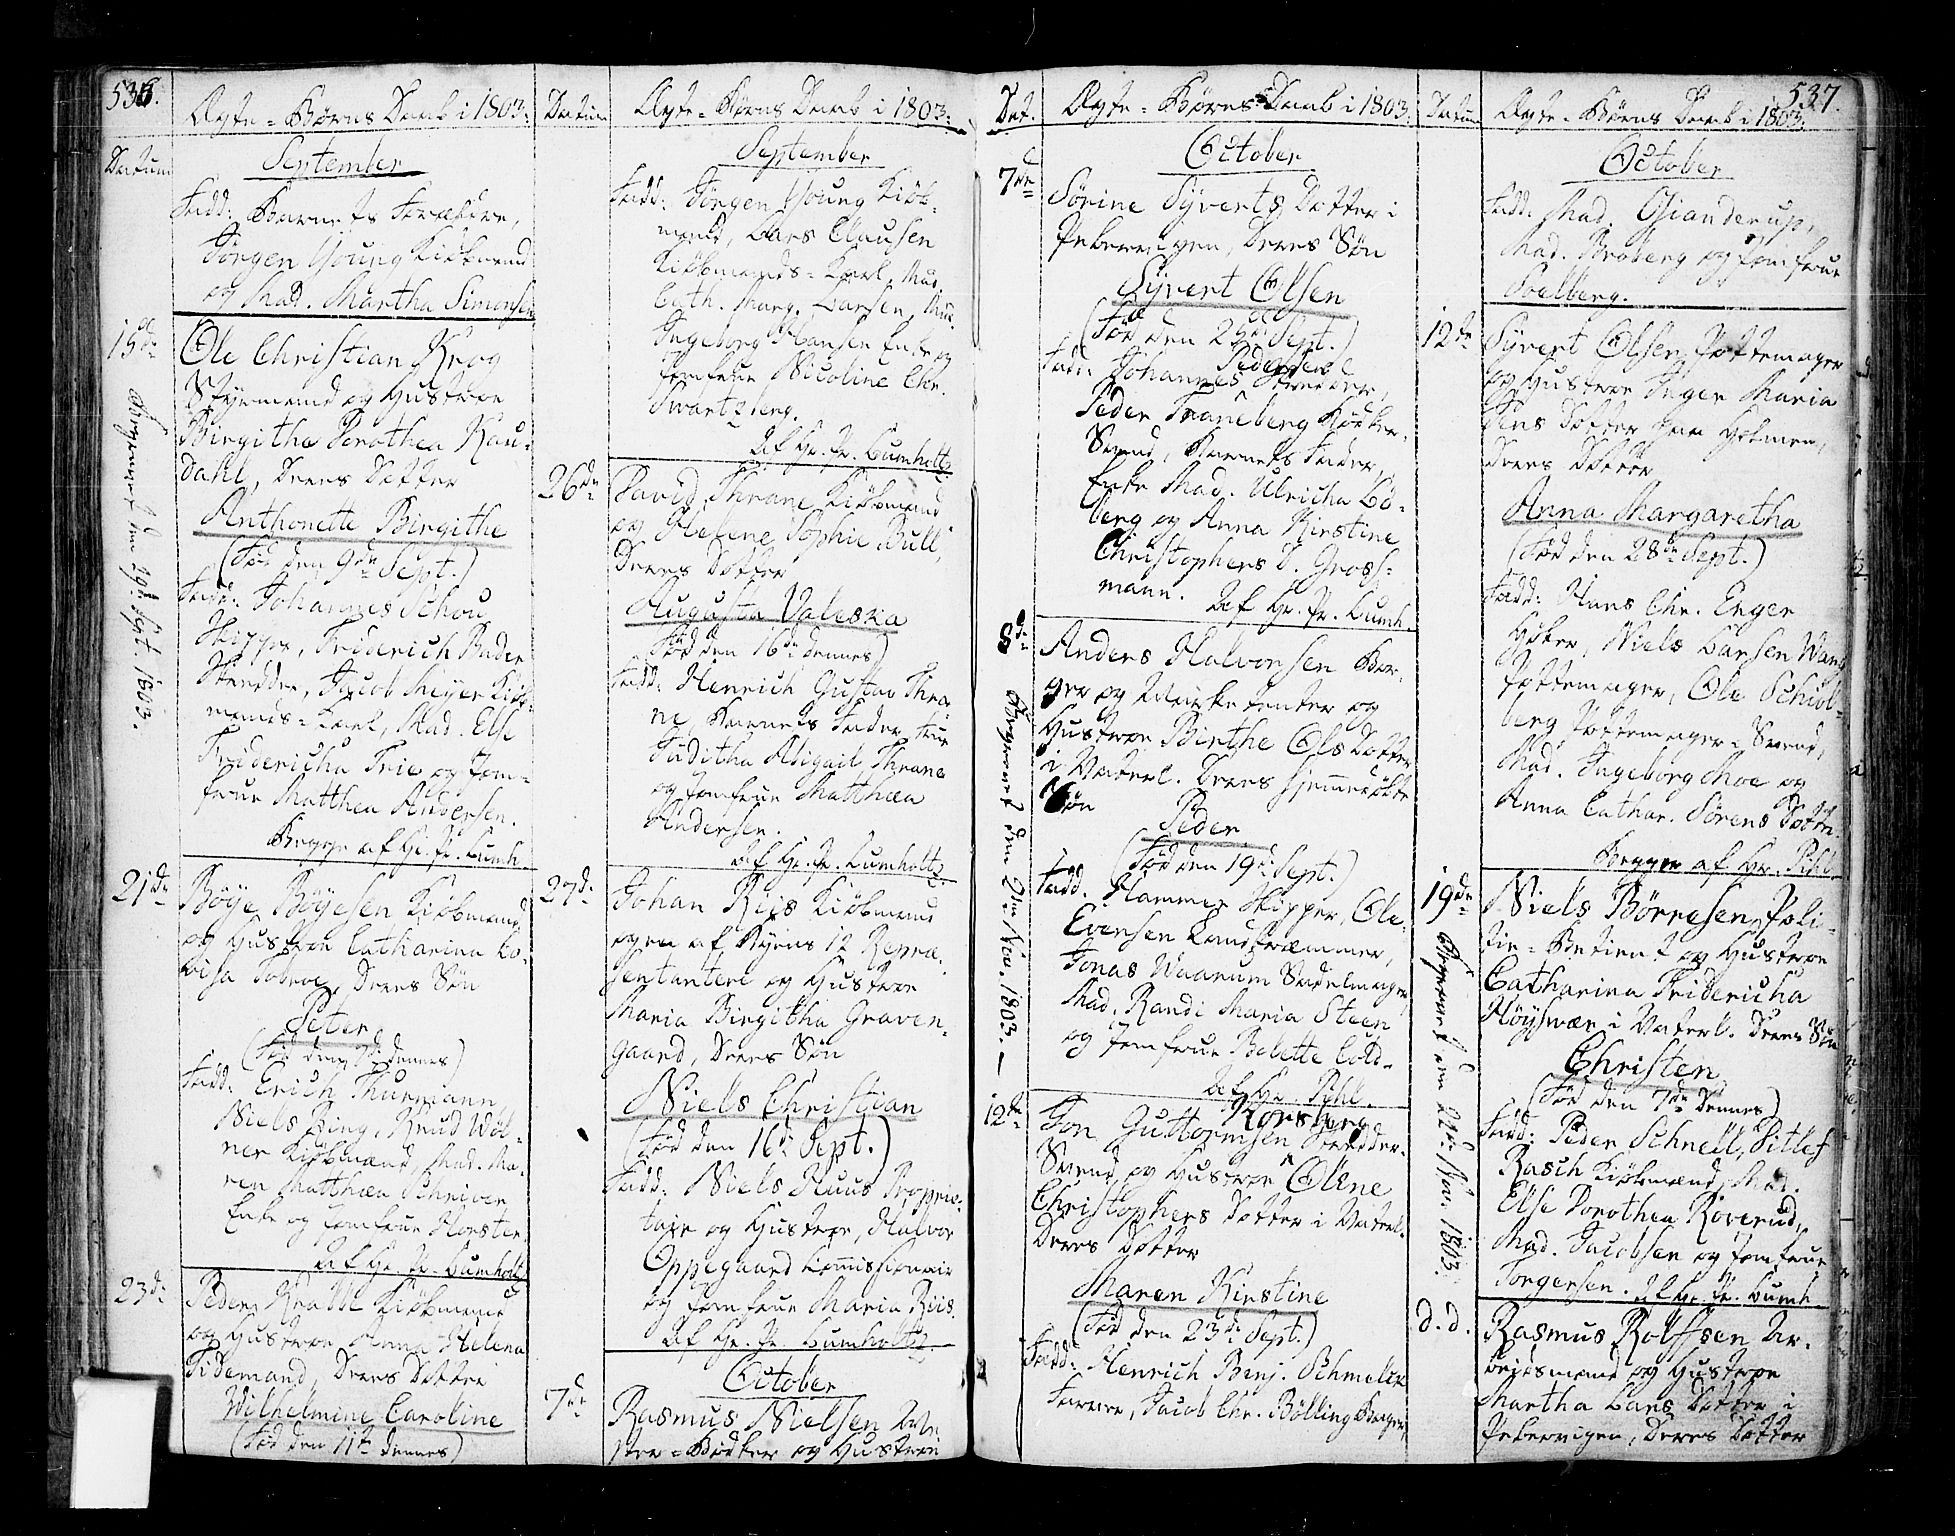 536.
Ægte-Børns Daab i 1803.
Datum
September
Fadd: Barnets Forældre,
Jørgen Young Kiøbmand
og Mad. Martha Simonsen
15de
Ole Christian Krog
Styrmand og Hustroe
Birgithe Dorothea Kau-
dahl, Deres Datter
Anthonette Birgithe
(Fød den 9de Sept.)
Fadd: Johannes Schou
Skipper, Friderich Bader
Skredder, Jacob Meyer Kiøb-
mands-Karl, Mad. Else
Fridericha Frie og Jom-
frue Matthea Andersen.
Begge af Hr. Pr. Lumh.
Begravet den 29de Sept. 1803.
21de
Bøye Bøyesen Kiøbmand
og Hustroe Catharina Lo-
visa, Deres Søn
Peter
(Fød den 7de dennes)
Fadd: Erich Thurmann
Niels Bing, Knud Wøl-
ner Kiøbmænd, Mad. Ma-
ren Matthea Schriver
Enke og Jomfrue Horster
Af Hr. Pr. Lumholtz
23de
Peder Krabbe Kiøbmand
og Hustroe Anna Helena
Tidemand, Deres Datter
Wilhelmine Caroline
(Fød den 11te dennes)
Datum
Ægte-Børns Daab i 1803.
September
Fadd: Jørgen Young Kiøb-
mand, Lars Clausen
Kiøbmands-Karl, Mad.
Cath. Marg. Larsen, Mad.
Ingeborg Hansen Enke og
Jomfrue Nicoline Chr.
Swartzberg.
Af Hr. Pr. Lumholtz
26de
David Thrane Kiøbmand
og Helene Sophie Bull,
Deres Datter
Augusta Valeska
(Fød den 16de dennes)
Fadd: Henrich Gustav Thra-
ne, Barnets Fader, Frue
Juditha Abigail Thrane
og Jomfrue Matthea
Andersen.
Af Hr. Pr. Lumholtz.
27de
Johan Riis Kiøbmand
og en af Byens 12 Repræ-
sentantere og Hustroe
Maria Birgitha Graven-
gaard, Deres Søn
Niels Christian
(Fød den 16de Sept.)
Fadd: Niels Huus Proprie-
tair og Hustroe, Halvor
Oppegaard Commissionair
og Jomfrue Maria Riis.
Af Hr. Pr. Lumholtz.
October
7de
Rasmus Nielsen Me-
ster-Bødker og Hustroe
Dat.
Ægte-Børns Daab i 1803.
October
7de
Sørine Syverts Datter i
Pebervigen, Deres Søn
Syvert Olsen
(Fød den 25de Sept.)
Fadd: Johannes Pedersen Skredder,
Peder Traneberg Bødker-
Svend, Barnets Fader,
Enke Mad. Ulricha Lo-
berg og Anna Kirstine
Christophers D. Gross-
mann. Af Hr. Pr. Lumh.
8de
Anders Halvorsen Bor-
ger og Marketenter og
Hustroe Birthe Ols Datter
i Vaterl. Deres hjemmedøbte
Søn
Peder
(Fød den 19de Sept.)
Fadd. Hammer Skipper, Ole
Evensen Landkræmmer,
Jonas Waarum Sadelmager,
Mad. Randi Maria Steen
og Jomfrue Bolette Cold-
Af Hr. Pihl.
Begravet den 2den Nov. 1803.
12te
Jon Guttormsen Korsberg Skredder-
Svend og Hustroe Oline
Christophers Datter i Vaterl.
Deres Datter
Maren Kirstine
(Fød den 23de Sept.)
Fadd: Henrich Binj. Schmelck
Farver, Jacob Chr. Bølling Borger,
Datum
537.
Ægte-Børns Daab i 1803.
October
Fadd: Mad. Gianderup,
Mad. Broberg og Jomfrue
Soelberg.
12te
Syvert Olsen Pottemager
og Hustroe Inger Maria
Jens Datter paa Holmen,
Deres Datter
Anna Margaretha
(Fød den 28de Sept.)
Fadd: Hans Chr. Enger
Høker, Niels Larsen Wang
Pottemager, Ole Schiol-
berg Pottemager-Svend,
Mad. Ingeborg Moe og
Anna Cathar. Sørens Dotter.
Begge af Hr. Pihl.
19de
Niels Børresen Poli-
tie-Betient og Hustroe
Catharina Fridericha
Høyswær i Vaterl. Deres Søn
Christen
(Fød den 7de Dennes)
Fadd: Peder Schnell, Ditlef
Rasch Kiøbmænd, Mad.
Else Dorothea Røverud,
Mad. Jacobsen og Jomfrue
Torgersen. Af Hr. Pr. Lumh.
Begravet den 22de Nov. 1803.
d.d.
Rasmus Rolffsen Ar-
beidsmand og Hustroe
Martha Lars Datter i
Pebervigen, Deres Datter